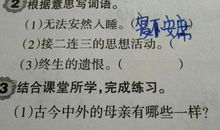 2 根据意思写词语。
(1)无法安然入睡。(寝不安席
(2)接二连三的思想活动。(
(3)终生的遗恨。(
3 结合课堂所学,完成练习。
(1)古今中外的母亲有哪些一样?